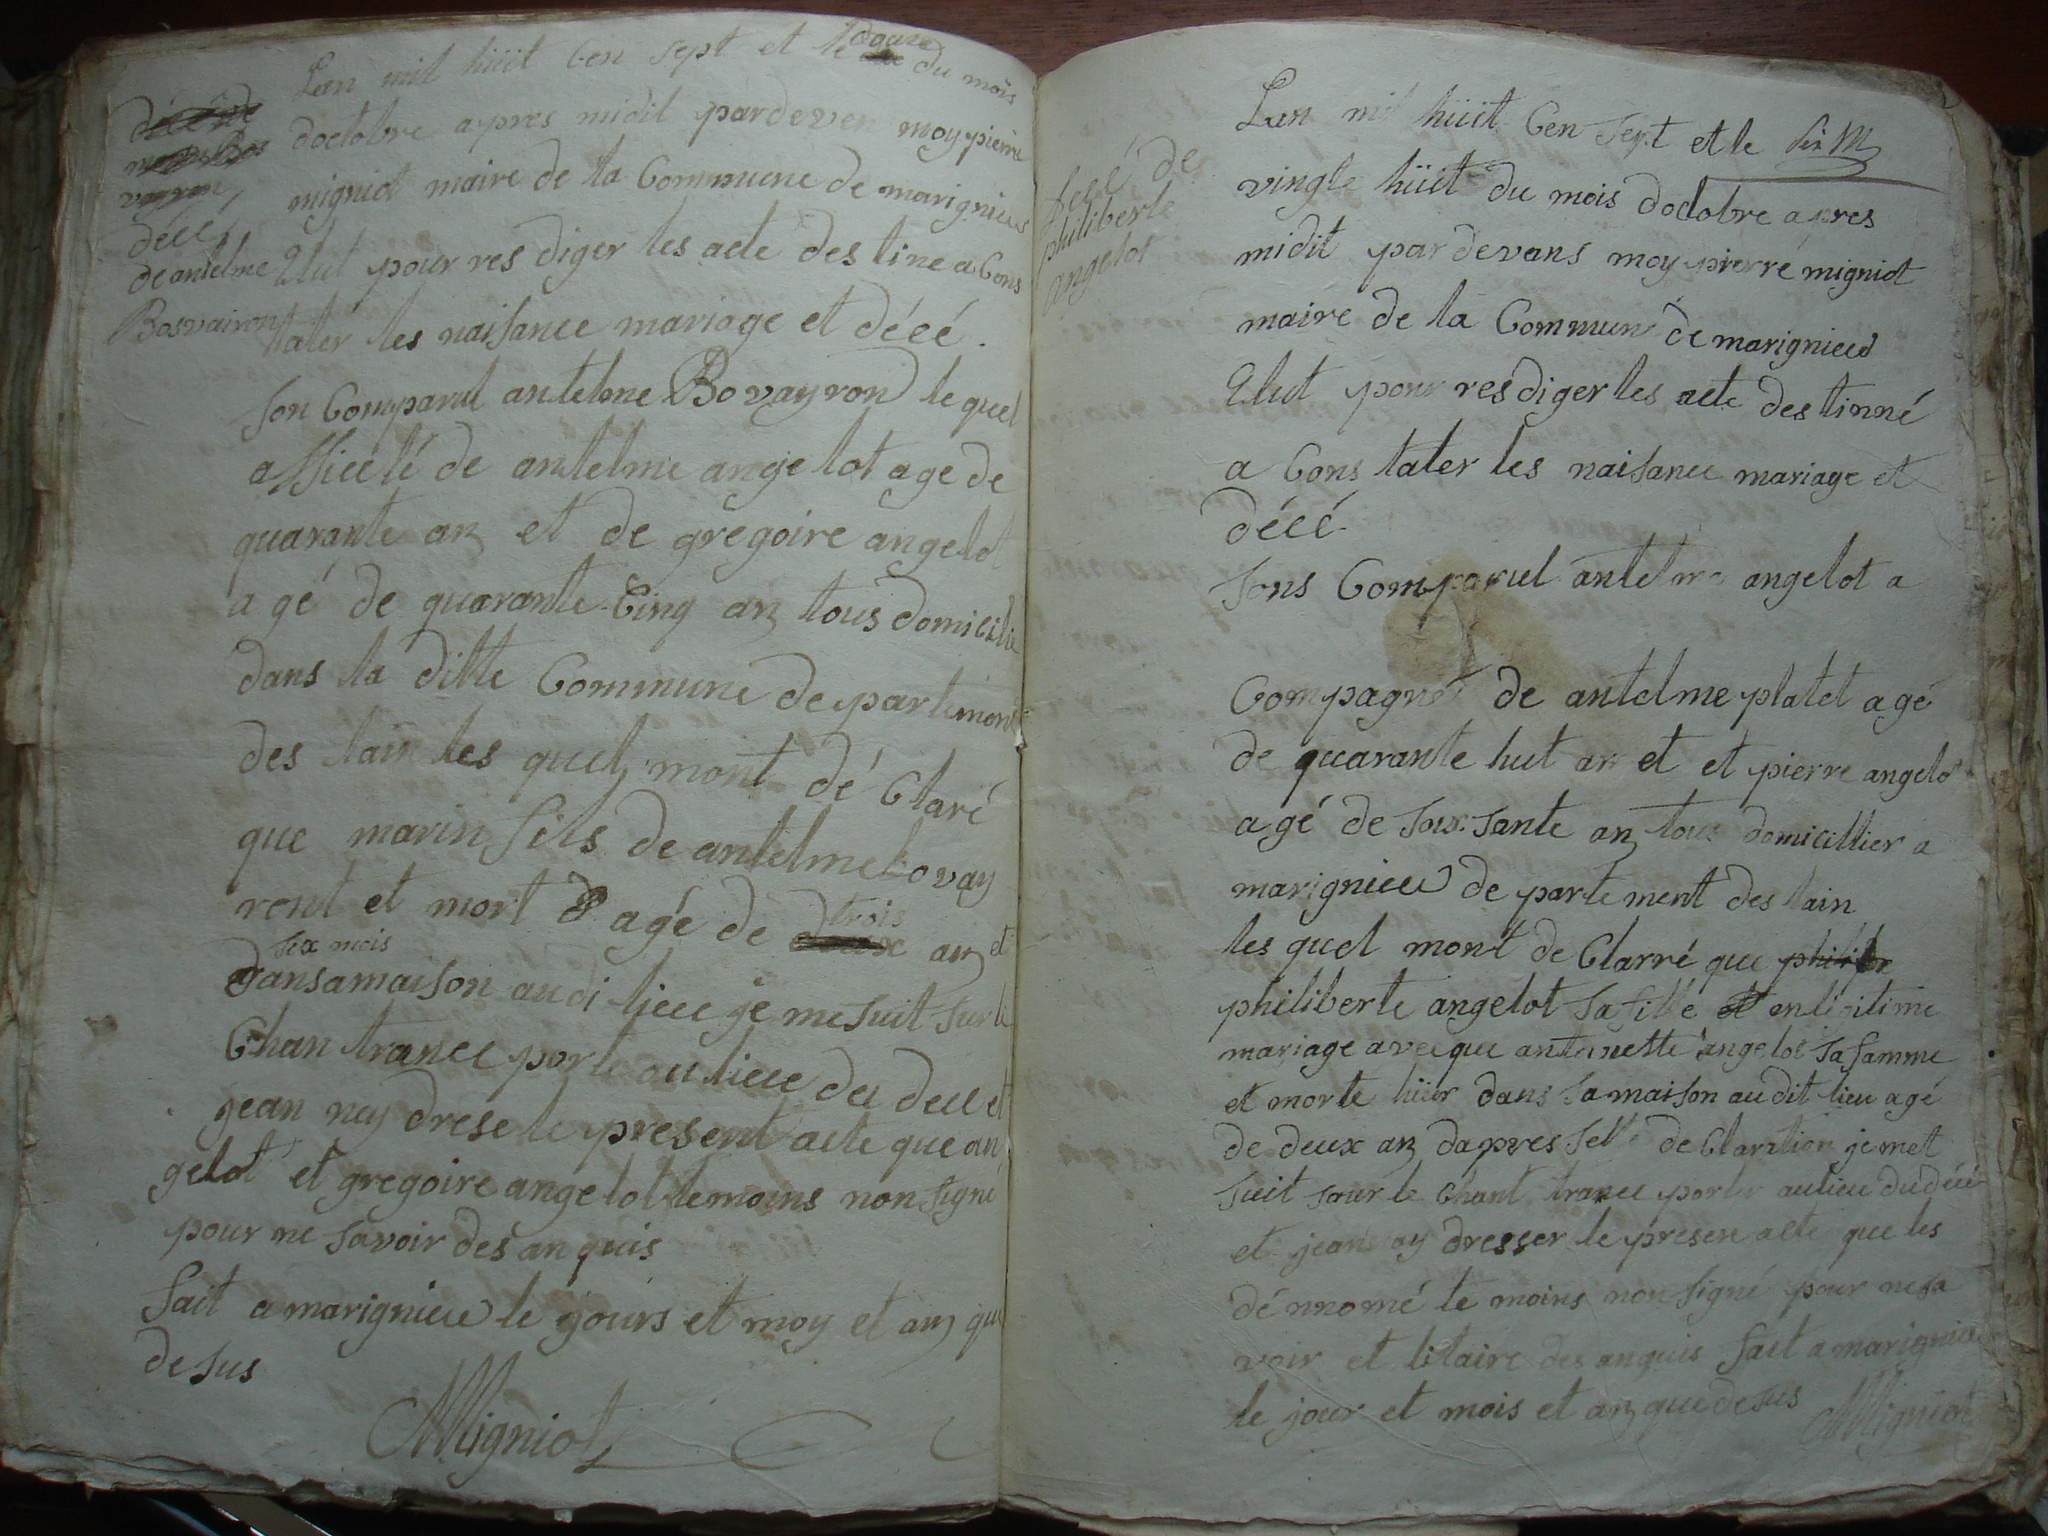 Lan mil hüit Cen sept et le douze du mois
doctobre apres midit pardeven moy pierre
migniot maire de la Commune de marignieu
Elut pour res diger les acte des tine a Cons
tater les naisance mariage et décé.
son Comparut antelme Bovayron le quel
assicelé de antelme angelot age de
quarante an et de gregoire angelot
agé de quarante Cinq an tous domicilie
dans la ditte Commune departement
des lain les quel mont dé Claré
que marin fils de antelme bovay
ront et mort agé de trois an et
six mois
dansamaison audi lieu je me suit sur le
Chan trance porte au lieu du décé et
jean ney drese le present acte que an
gelot et gregoire angelot temoins non signé
pour ne savoir des an quis
fait a marignieu le jours et moy et an que
desus
Migniot
décé
de antelme
Bosvairon
Lan mil hüit Cen sept et le
vingte hüit du mois doctobre apres
midit pardevans moy pierre migniot
maire de la Commune de marignieu
Elut pour res diger les acte des tinné
a Cons tater les naisance mariage et
décé
sons Comparut antelme angelot a
Compagné de antelme platet agé
de quarante hut an et et pierre angelo
agé de soux sante an tous domicillier a
marignieu de parte ment des lain
les quel mont de Clarré que philibr
philiberte angelot sa fille en légitime
mariage avecque antoinette angelot sa famme
et morte hüer dans sa maison au dit lieu agé
de deux an dapres selle de Claration je met
suit sour le Chant trance porter au lieu du décé
et jean ay dresser le presen acte que les
dénnomé te moins non signé pour ne sa
voir et litaire des anquis fait a marignieu
le jour et mois et an que desus Migniot
décé de
philiberte
angelot